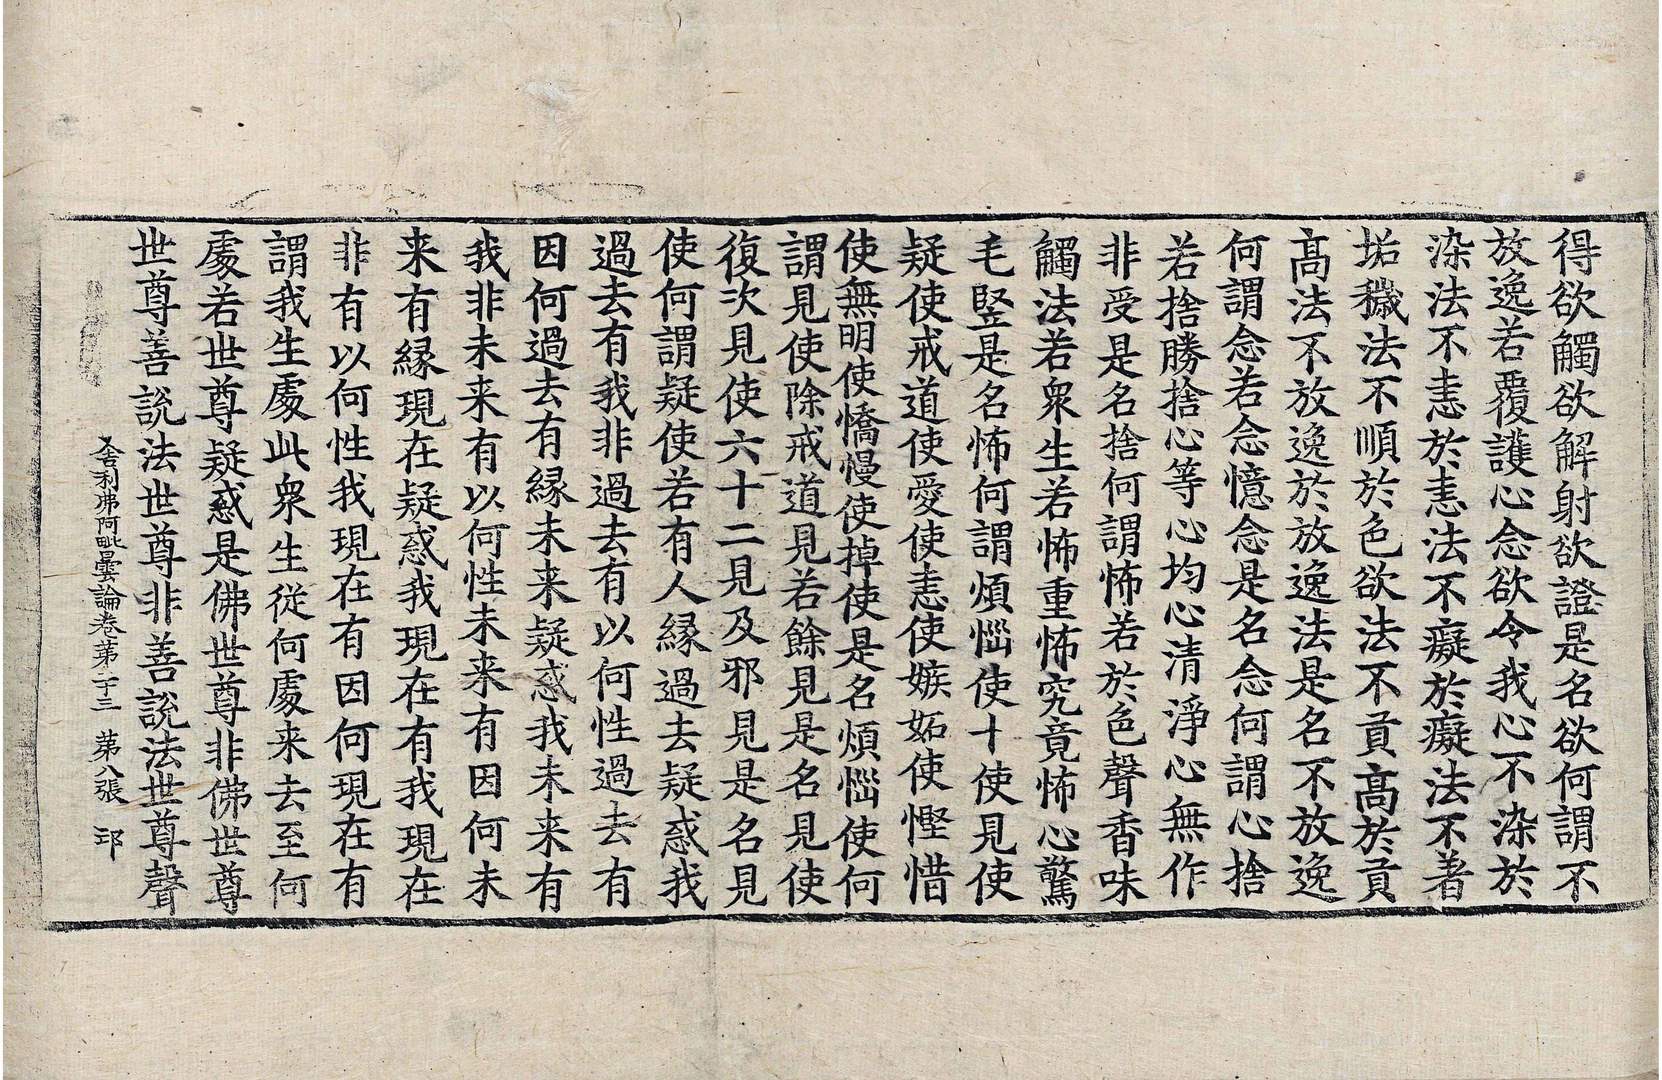 得欲觸欲解射欲證是名欲何謂不
放逸若覆護心念欲令我心不染於
染法不恚於恚法不癡於癡法不著
垢穢法不順於色欲法不貢髙於貢
髙法不放逸於放逸法是名不放逸
何謂念若念憶念是名念何謂心捨
若捨勝捨心等心均心清淨心無作
非受是名捨何謂怖若於色聲香味
觸法若衆生若怖重怖究竟怖心驚
毛竪是名怖何謂煩惱使十使見使
疑使戒道使愛使恚使嫉妬使慳惜
使無明使憍慢使掉使是名煩惱使何
謂見使除戒道見若餘見是名見使
復次見使六十二見及邪見是名見
使何謂疑使若有人縁過去疑惑我
過去有我非過去有以何性過去有
因何過去有縁未来疑惑我未来有
我非未来有以何性未来有因何未
来有縁現在疑惑我現在有我現在
非有以何性我現在有因何現在有
謂我生處此衆生從何處来去至何
處若世尊疑惑是佛世尊非佛世尊
世尊善說法世尊非善說法世尊聲
舍利弗阿毗曇論卷第二十三 第八張 邛